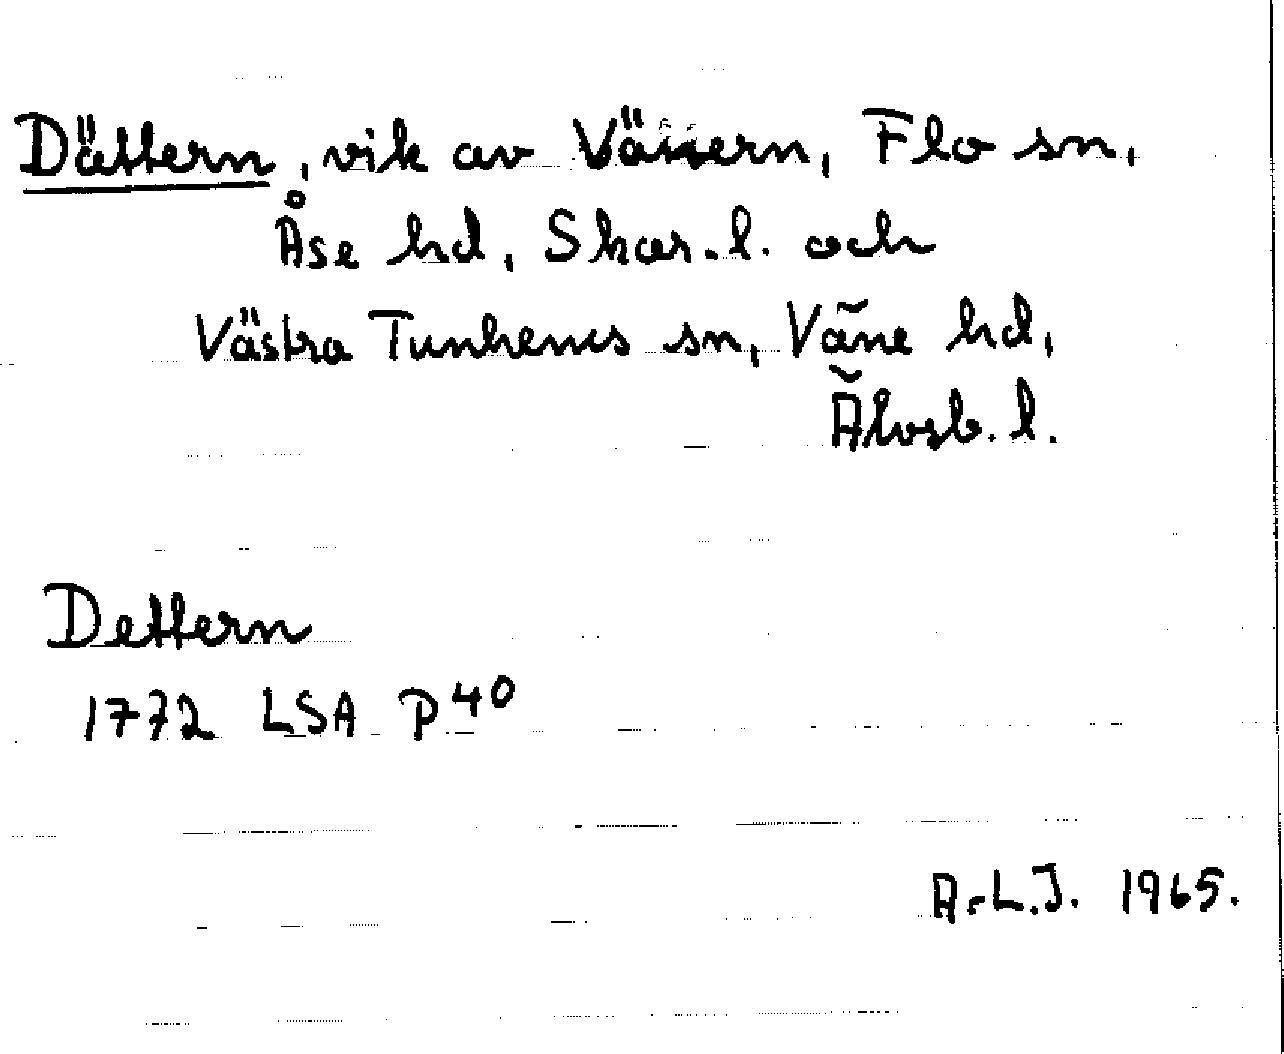 Dättern, vik av Vänern, Flo sn,
Åse hd, Skar. l. och
Västra Tunhems sn, Väne hd,
Älvsb. l.
Dettern
1772 LSA P 40
A.L.J. 1965.